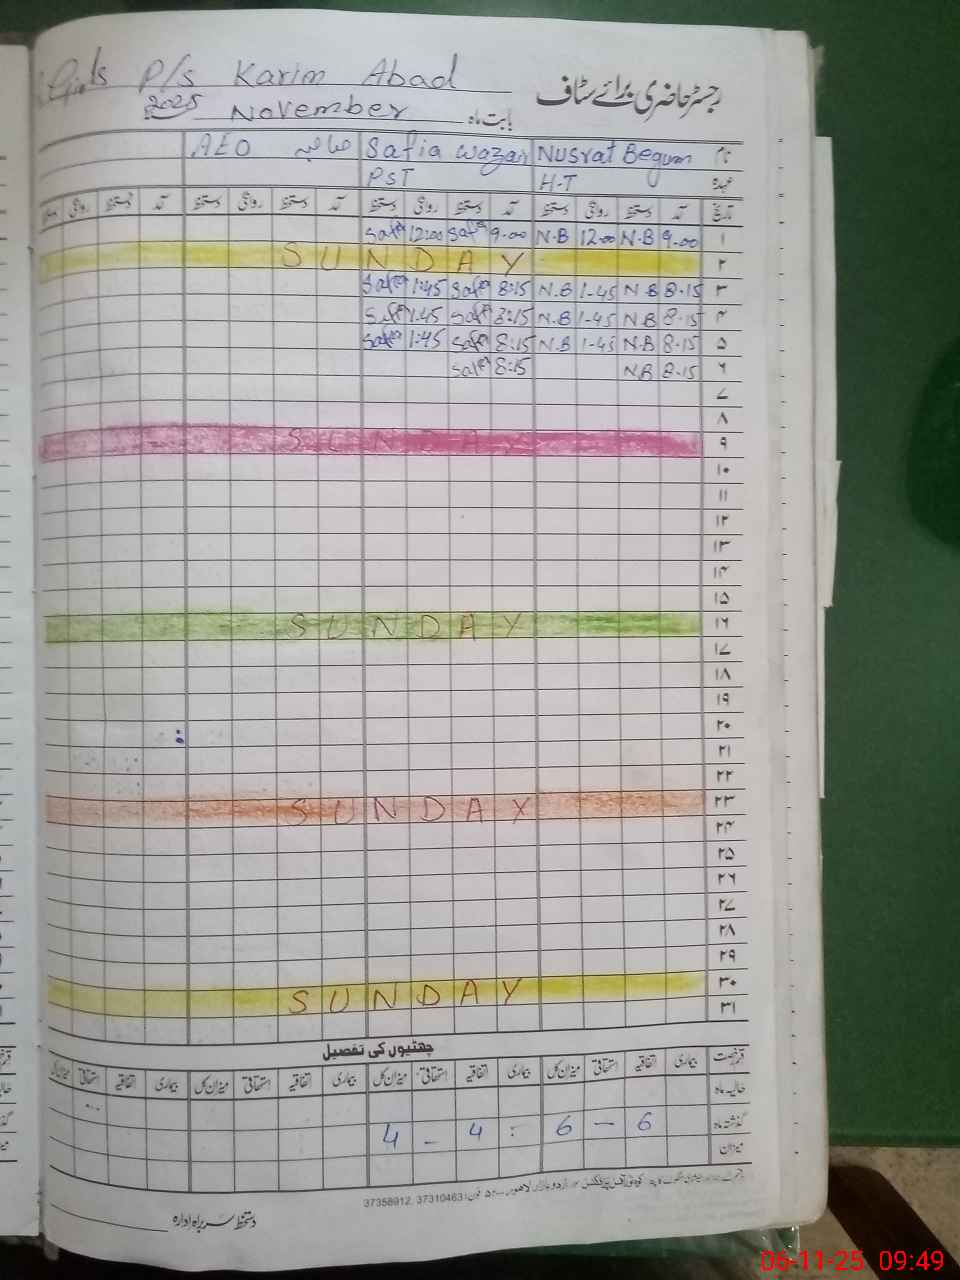 Girls P/s Karim Abad
رجسٹر حاضری برائے سٹاف
2025 November بابت ماہ
نام Nusrat Begum Safia Wazar صاحبہ AEO
عہدہ H-T PST
تاریخ آمد دستخط روانگی دستخط آمد دستخط روانگی دستخط آمد دستخط روانگی دستخط آمد دستخط روانگی
۱ 9.00 N.B 12.00 N.B 9.00 Safi 12:00 Safi
۲ SUNDAY
۳ 8.15 N.B 1-45 N.B 8:15 Safi 1:45 Safi
۴ 8.15 N.B 1-45 N.B 8:15 Safi 1.45 Safi
۵ 8.15 N.B 1-45 N.B 8:15 Safi 1:45 Safi
۶ 8.15 N.B 8:15 Safi
۷
۸
۹ SUNDAY
۱۰
۱۱
۱۲
۱۳
۱۴
۱۵
۱۶ SUNDAY
۱۷
۱۸
۱۹
۲۰
۲۱
۲۲
۲۳ SUNDAY
۲۴
۲۵
۲۶
۲۷
۲۸
۲۹
۳۰ SUNDAY
۳۱
چھٹیوں کی تفصیل
قسم رخصت بیماری اتفاقیہ استحقاقی میزان کل بیماری اتفاقیہ استحقاقی میزان کل بیماری اتفاقیہ استحقاقی میزان کل بیماری اتفاقیہ استحقاقی میزان کل
حالیہ ماہ
گذشتہ ماہ 6 — 6 4 – 4
میزان
اردو بازار لاہور 37310463, 37358912
دستخط سربراہ ادارہ
06-11-25 09:49